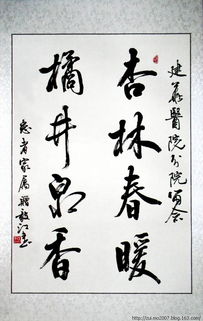 建華醫院分院留念
杏林春暖
橘井泉香
患者家属
http://tsui.mo2007.blog.163.com/